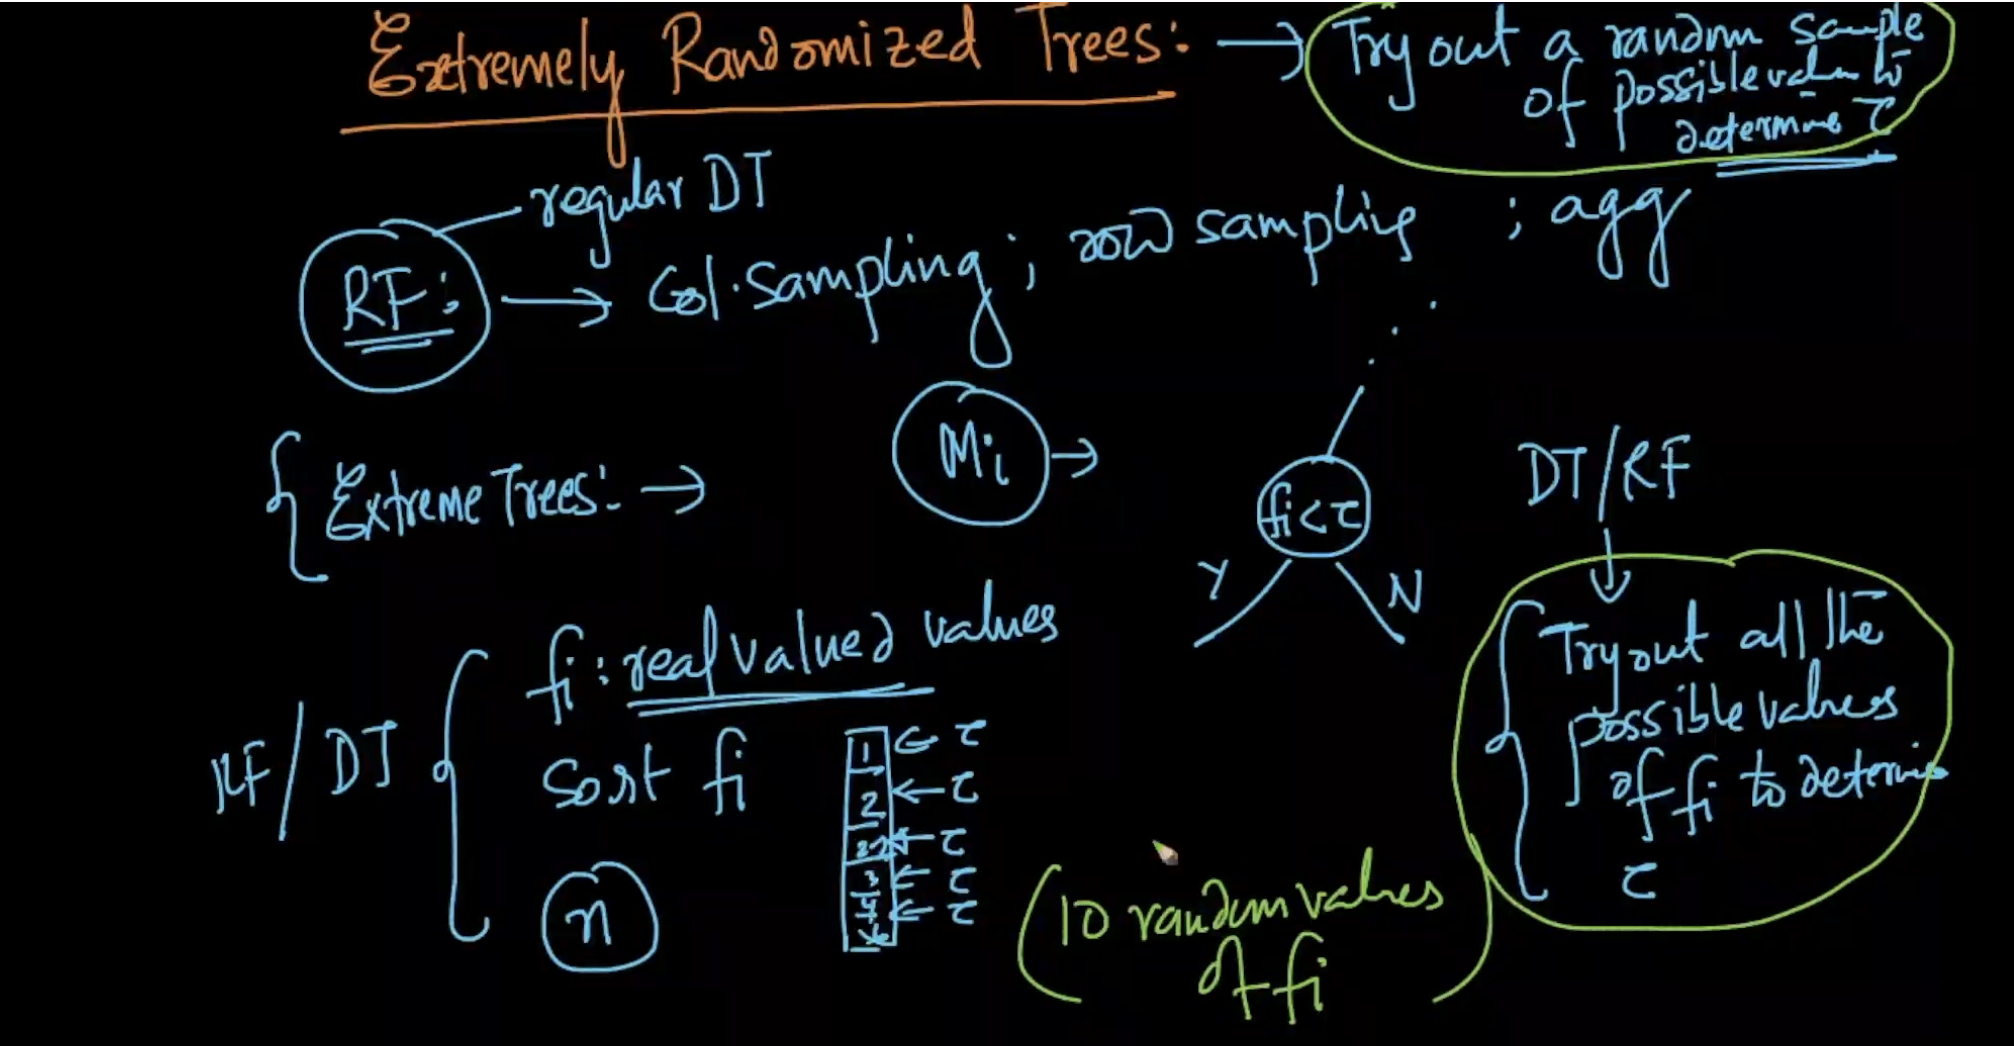 Extremely Randomized Trees: → Try out a random sample
of possible values to
determine τ
regular DT
RF: → Col. Sampling ; row sampling ; agg
{ Extreme Trees: → Mi →
fi < τ
Y N
DT/RF
↓
Try out all the
possible values
of fi to determine
τ
RF/DT
fi : real valued values
Sort fi
n
1 ← τ
2 ← τ
2.2 ← τ
3 ← τ
4 ← τ
(10 random values
of fi)